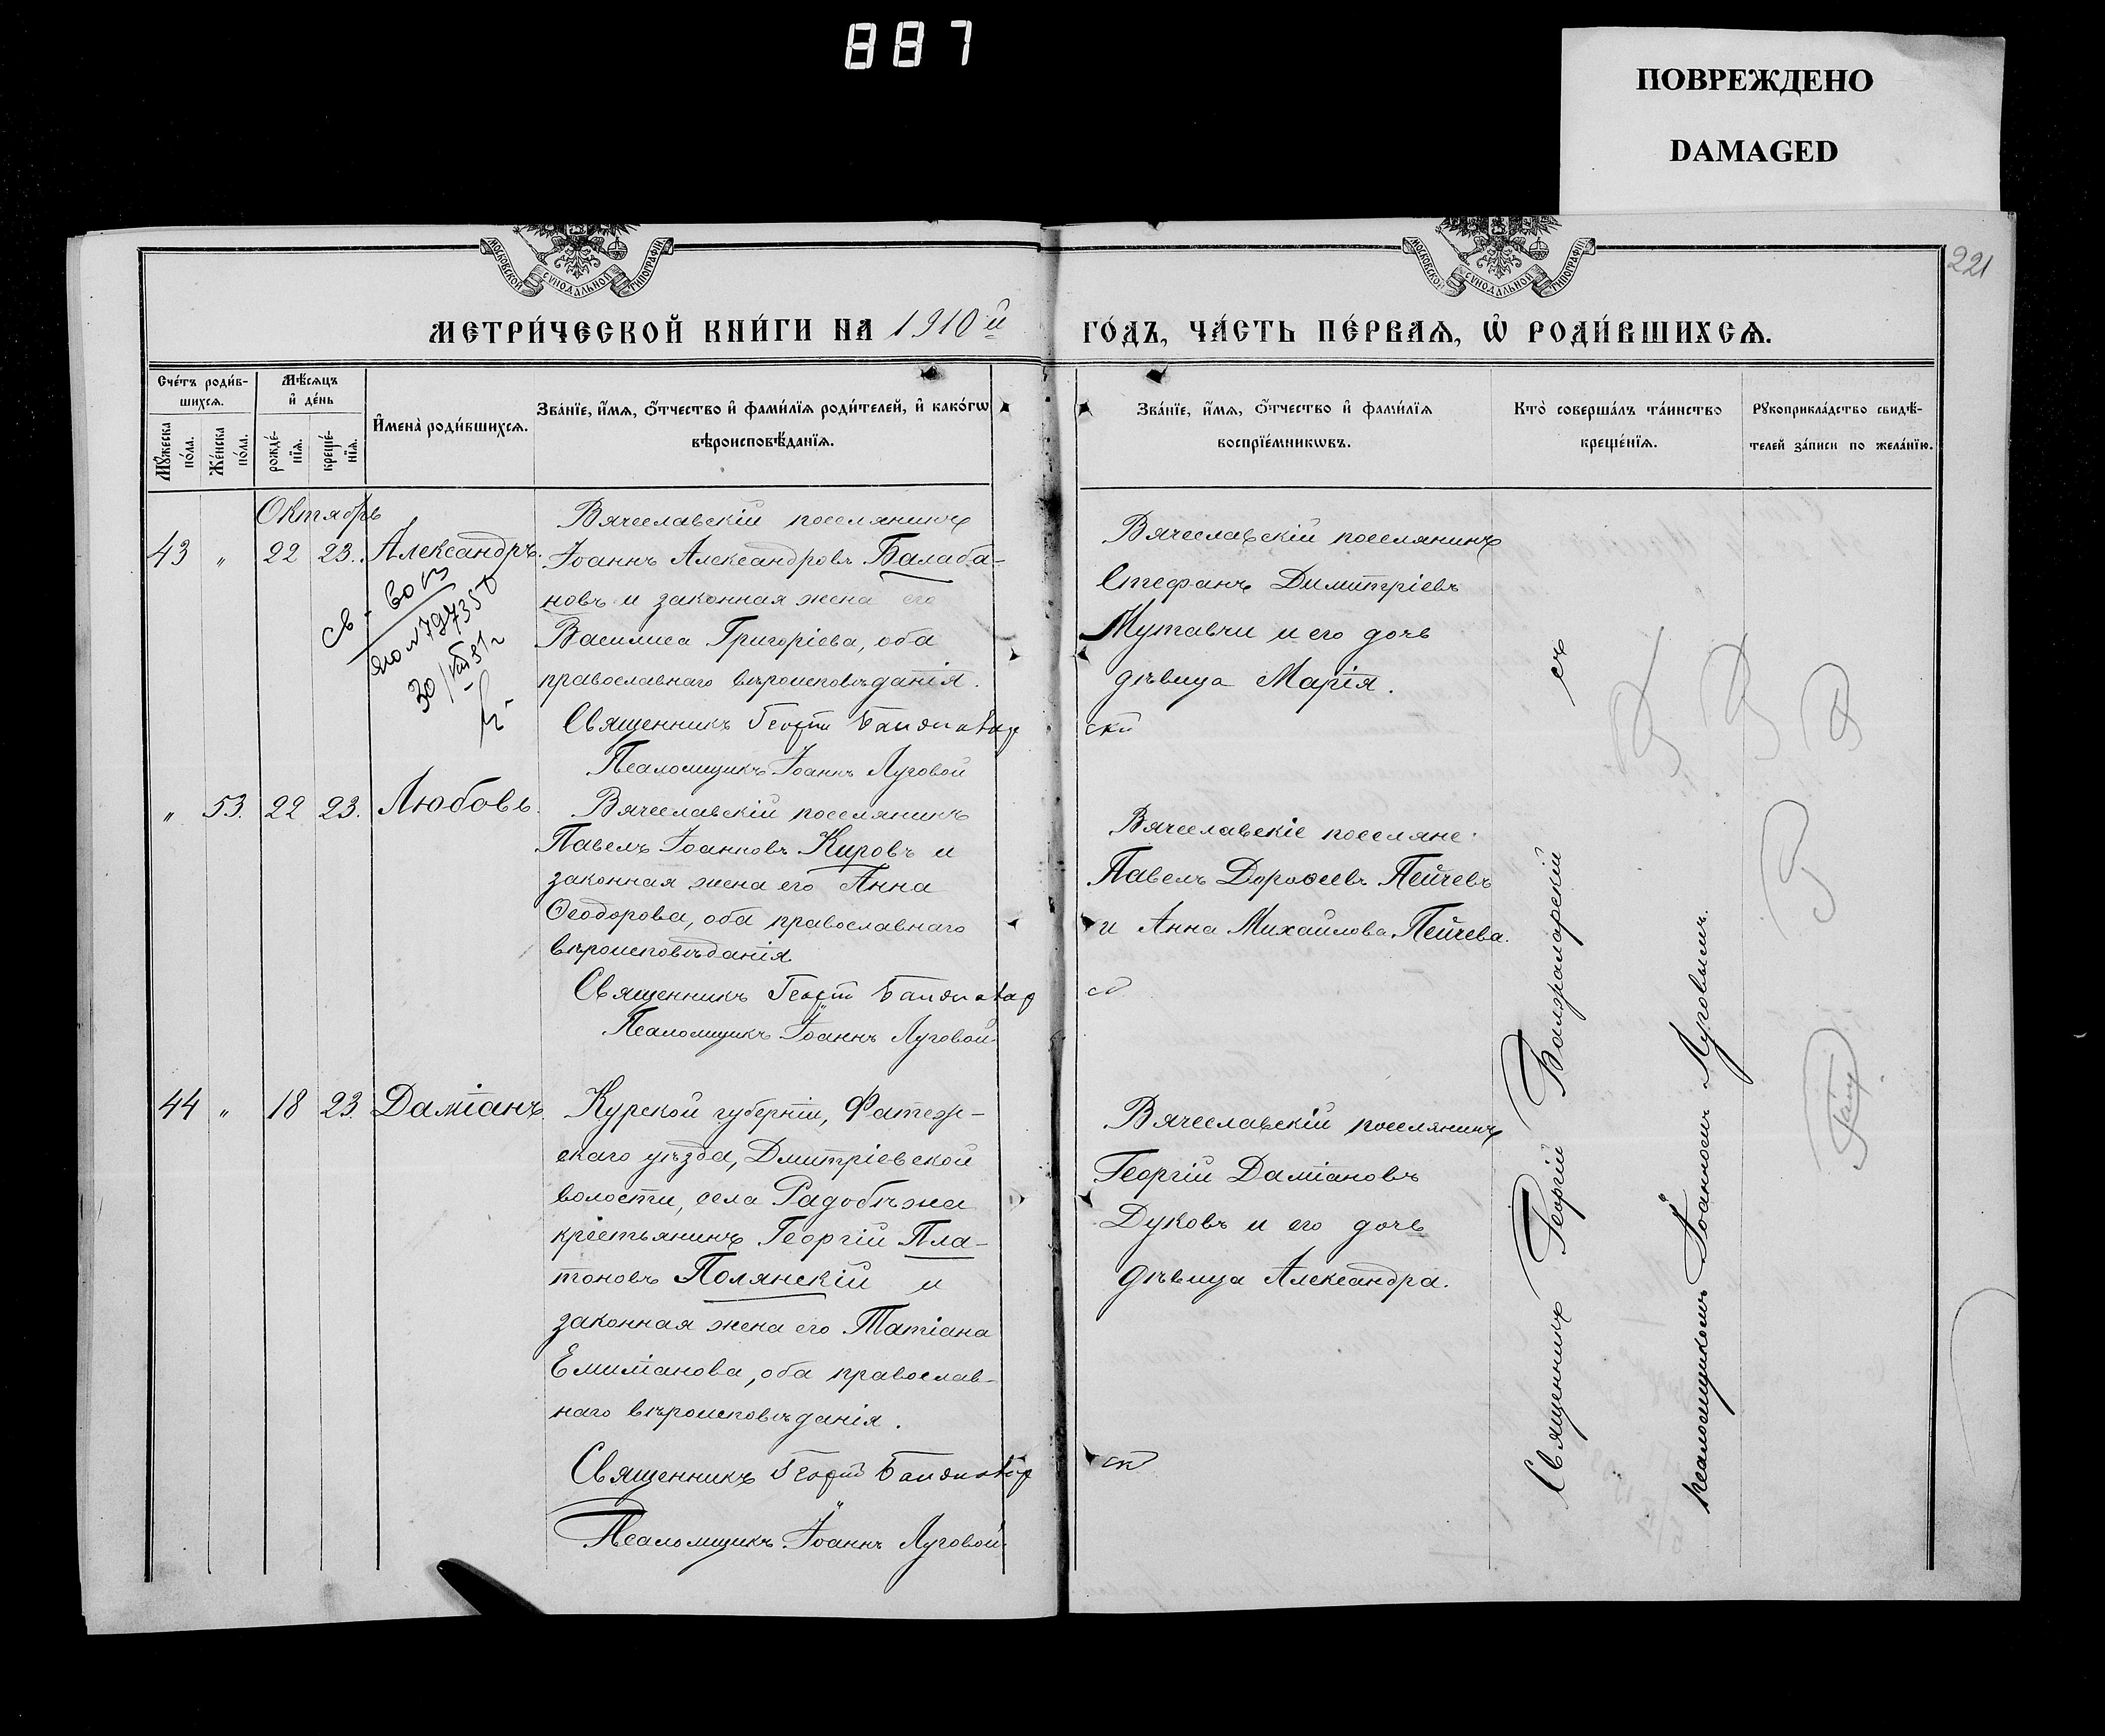 887
ПОВРЕЖДЕНО
DAMAGED
221
МОСКОВСКОЙ СѴНОДАЛЬНОЙ ТИПОГРАФІИ
МОСКОВСКОЙ СѴНОДАЛЬНОЙ ТИПОГРАФІИ
МЕТРИ́ЧЕСКОЙ КНИ́ГИ НА 1910й ГО́ДЪ, ЧА́СТЬ ПЕ́РВАѦ, Ѽ РОДИ́ВШИХСѦ.
Сче́тъ роди́в-
шихсѧ.
Мꙋ́жеска по́ла.
Же́нска по́ла.
Мѣ́сѧцъ
и҆ де́нь
рожде́-
нїѧ.
креще́-
нїѧ.
И҆мена̀ роди́вшихсѧ.
Зва́нїе, и҆́мѧ, ѻ҆́тчество и҆ фами́лїѧ роди́телей, и҆ како́гѡ
вѣроисповѣ́данїѧ.
Зва́нїе, и҆́мѧ, ѻ҆́тчество и҆ фами́лїѧ
воспрїе́мникѡвъ.
Кто̀ соверша́лъ та́инство
креще́нїѧ.
Рꙋкоприкла́дство свидѣ́-
телей за́писи по жела́нїю.
Октябрь
43 " 22 23. Александръ.
Вячеславскій поселянинъ
Іоаннъ Александровъ Балаба-
новъ и законная жена его
Василиса Григоріева, оба
православнаго вѣроисповѣданія.
Священникъ Георгій
Псаломщикъ Іоаннъ Луговой
Вячеславскій поселянинъ
Стефанъ Димитріевъ
Мутавчи и его дочь
дѣвица Марія.
скій
" 53. 22 23. Любовь.
Вячеславскій поселянинъ
Павелъ Іоанновъ Кировъ и
законная жена его Анна
Ѳеодорова, оба православнаго
вѣроисповѣданія
Священникъ Георгій
Псаломщикъ Іоаннъ Луговой
Вячеславскіе поселяне:
Павелъ Дороѳеевъ Пейчевъ
и Анна Михайлова Пейчева.
44 " 18 23. Даміанъ.
Курской губерніи, Фатеж-
скаго уѣзда, Дмитріевской
волости, села Радобѣжа
крестьянинъ Георгій Пла-
тоновъ Полянскій и
законная жена его Татіана
Емиліанова, оба православ-
наго вѣроисповѣданія.
Священникъ Георгій
Псаломщикъ Іоаннъ Луговой
Вячеславскій поселянинъ
Георгій Даміановъ
Дуковъ и его дочь
дѣвица Александра.
Священникъ Георгій съ
псаломщикомъ Іоанномъ Луговымъ.